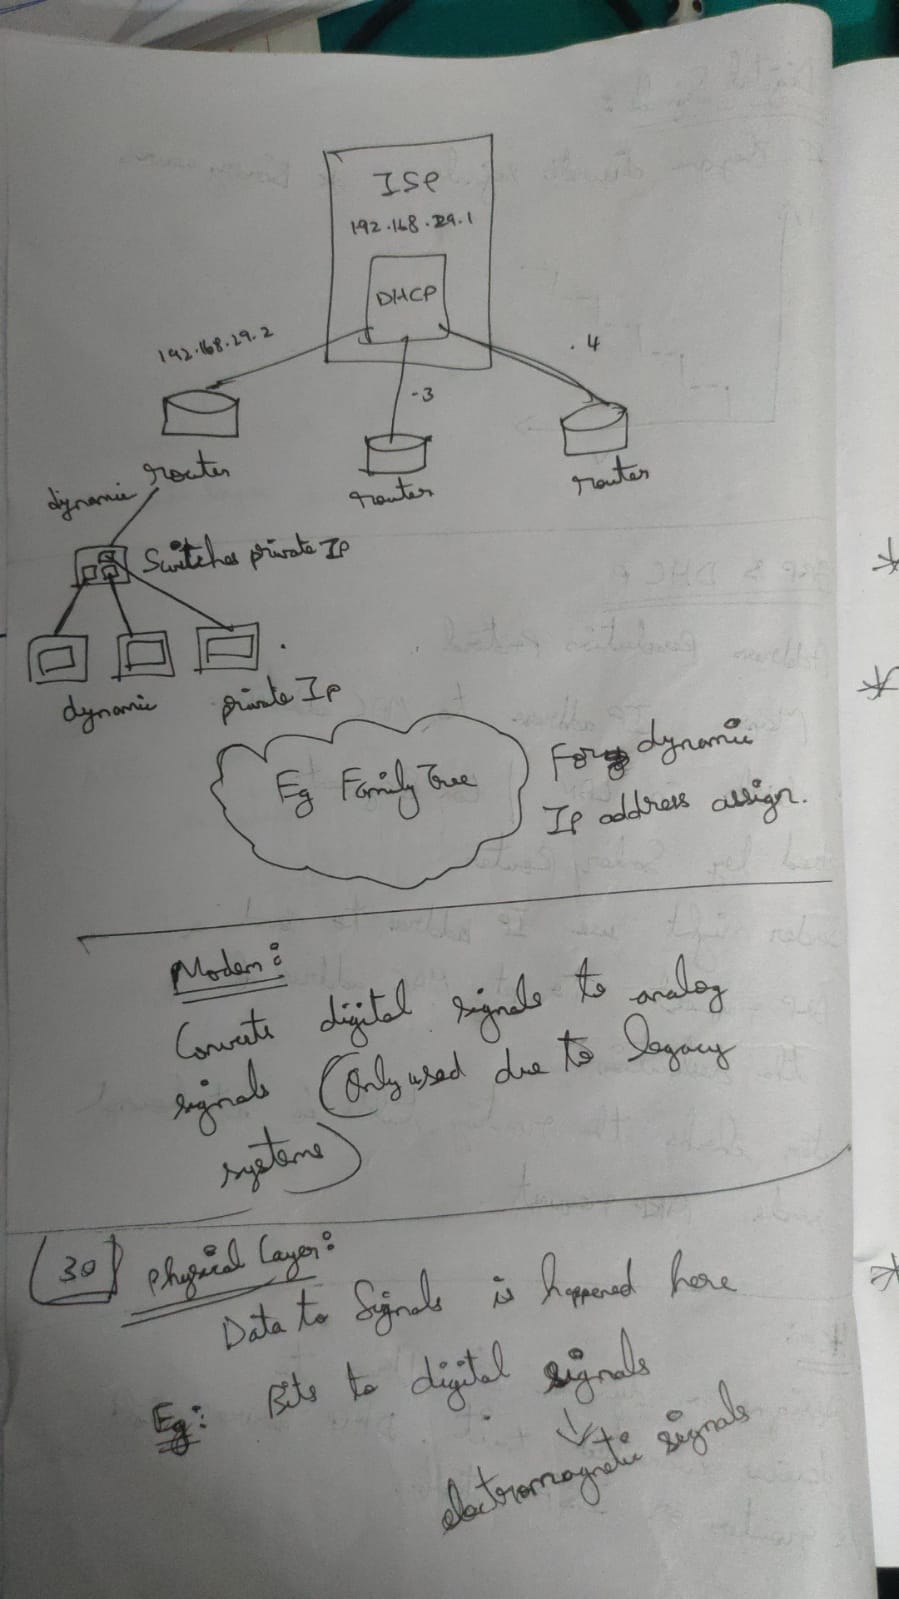 ISP
192.168.29.1
DHCP
192.168.29.2
-3
.4
router
router
router
dynamic
Switches private IP
dynamic
private IP
Eg Family Tree
For dynamic
IP address assign.
Modem:
Converts digital signals to analog
signals (Only used due to legacy
systems)
30
Physical Layer:
Data to Signals is happened here
Eg: Bits to digital signals
to
electromagnetic signals